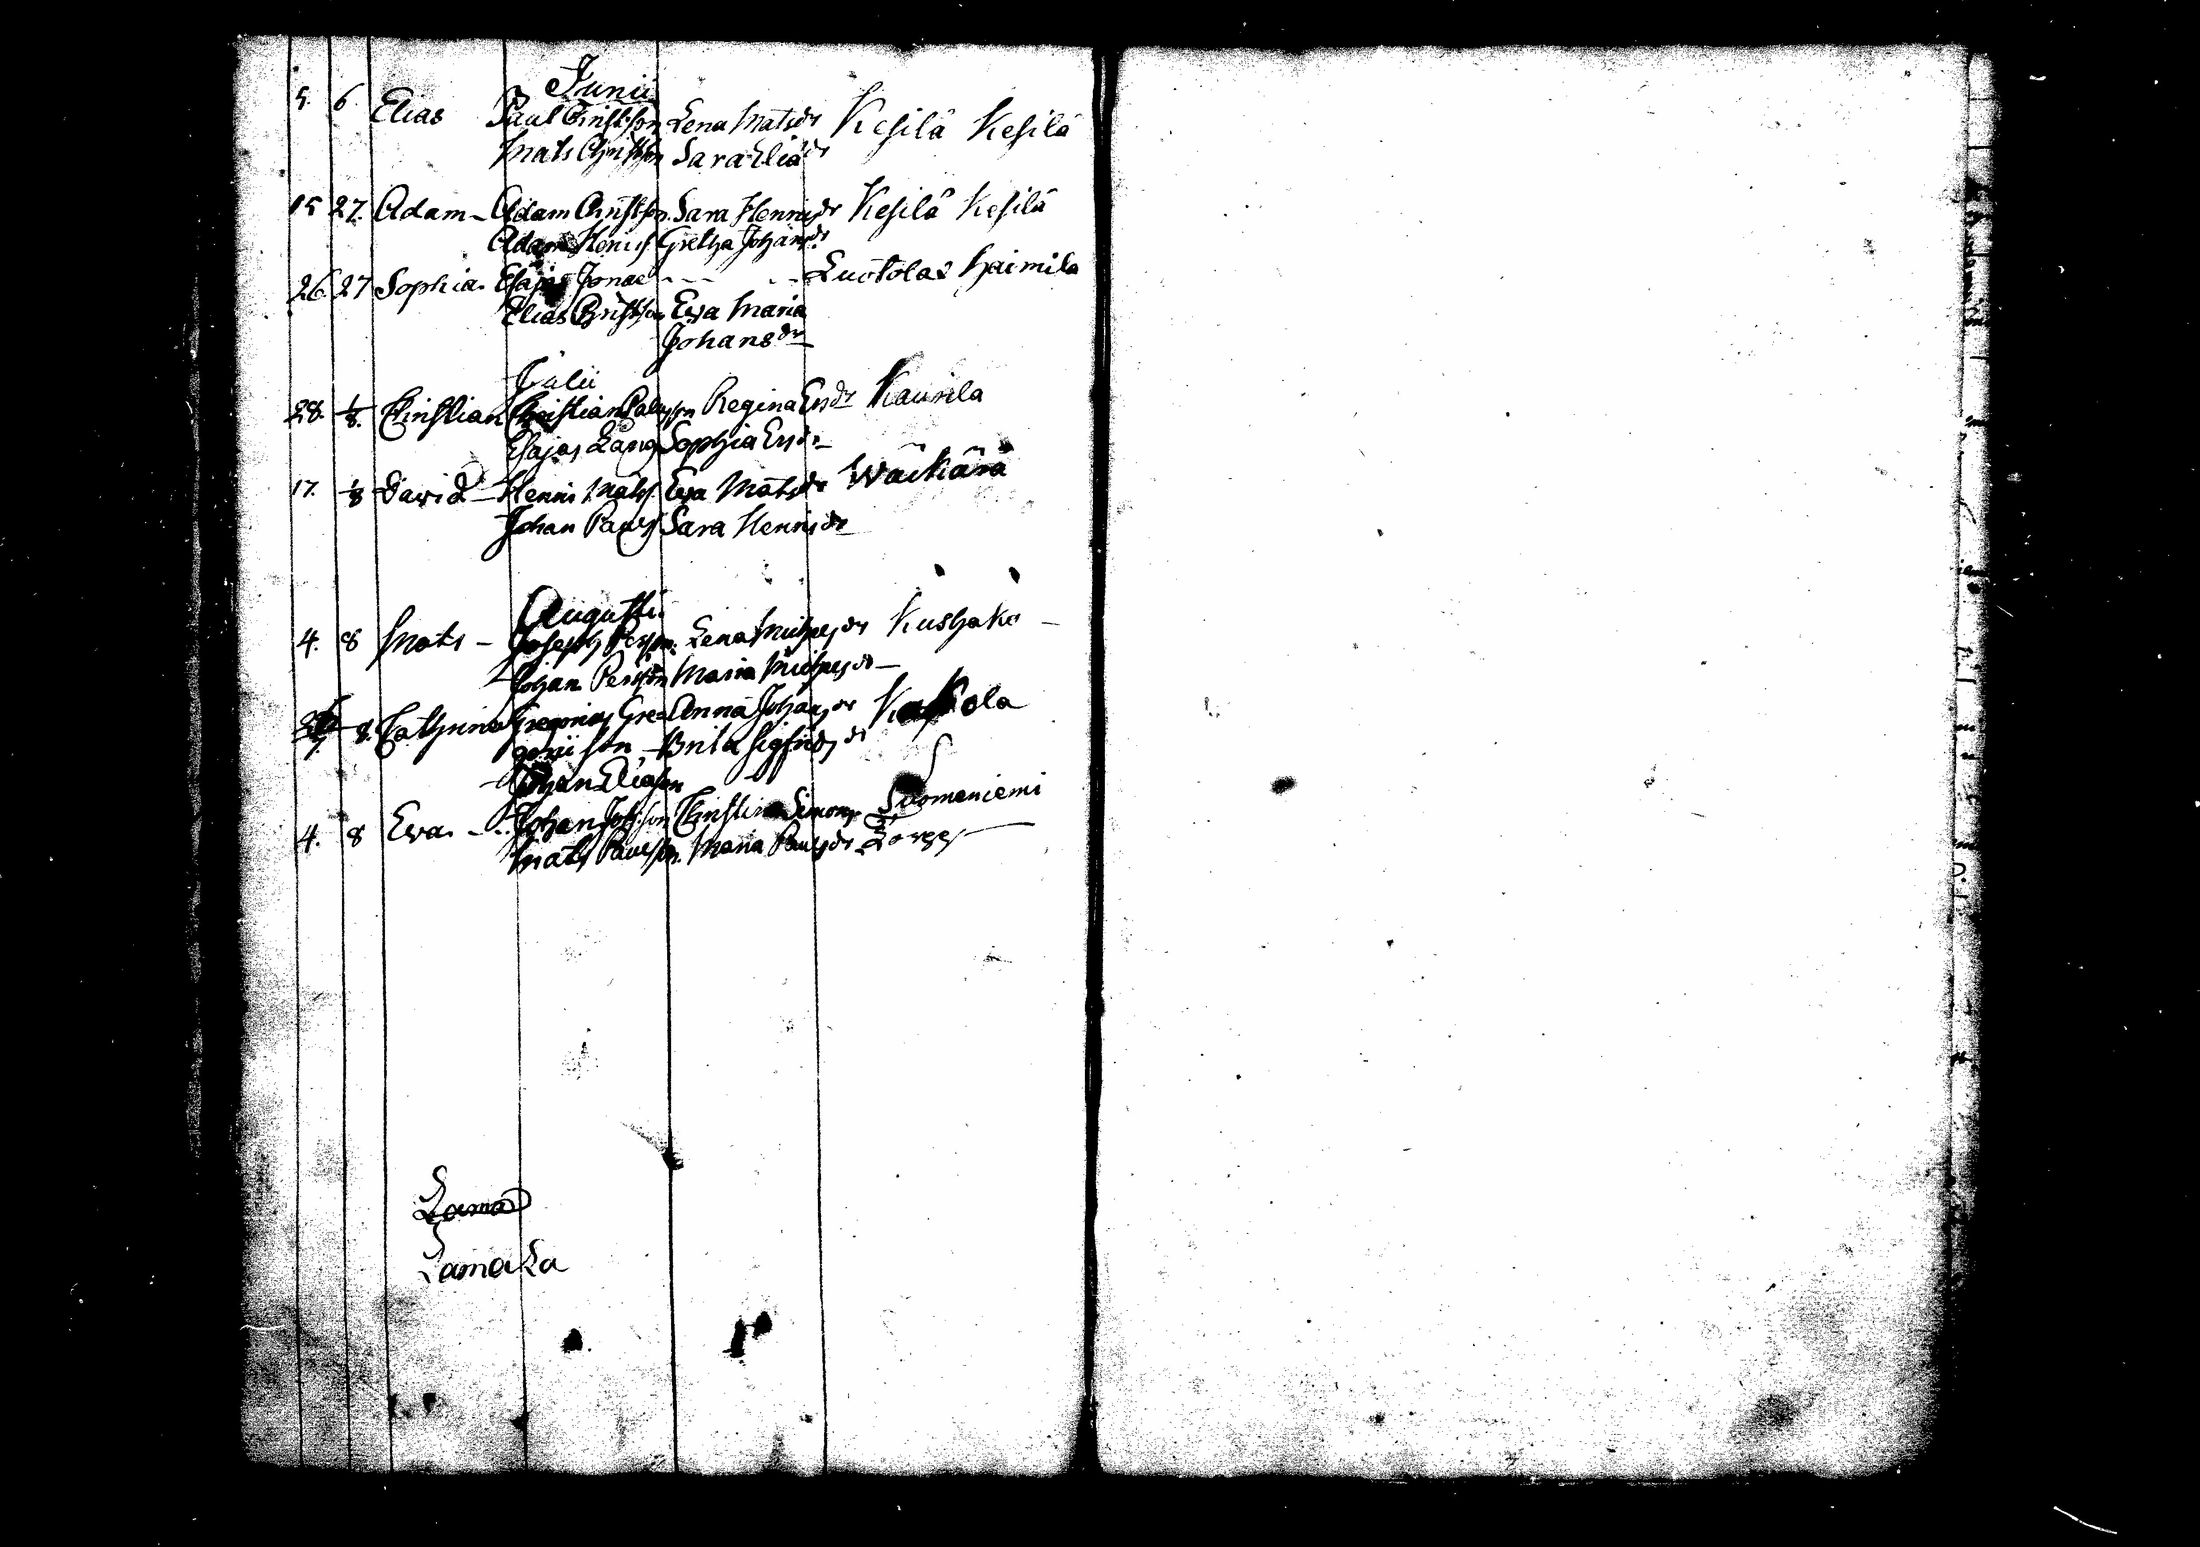 Junii
5. 6. Elias Paul Christsson Lena Matsdr Kesilä Kesilä
Mats Christsson Sara Eliædr
15 27. Adam - Adam Christsson Sara Hennsdr Kesilä Kesilä
Adam Henss Gretha Johansdr
26. 27 Sophia. Esajas Jonae - - - - - Luotolas Haimila
Elias Christsson Ewa Maria
Johansdr
Julii
28. 1/8. Christian Christian Palusson Regina Ersdr Kaurila
Esajas Lang Sophia Ersdr
17. 1/8 David - Henric Matss Ewa Matsdr Wäckärä
Johan Pauls Sara Hennsdr
Augusti
4. 8 Mats - Joseph Persson Lena Michelsdr Kushako -
Johan Persson Maria Michelsdr -
8. Cathrina Gregorius Gre- Anna Johansdr Kakola
goriison - Brita Sigfridsdr
- Johan Eliasson
4. 8 Ewa. - Johan Johsson Christina Simons Suomeniemi
Mats Paulsson. Maria Paulsdr
Lama
Lamala